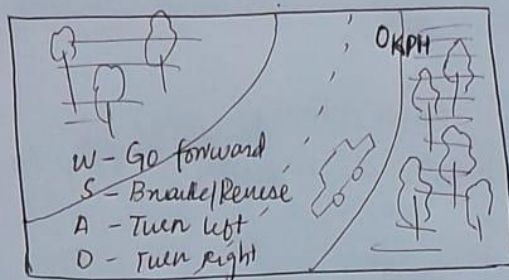 0KPH
W - Go forward
S - Brake/Reverse
A - Turn left
D - Turn right